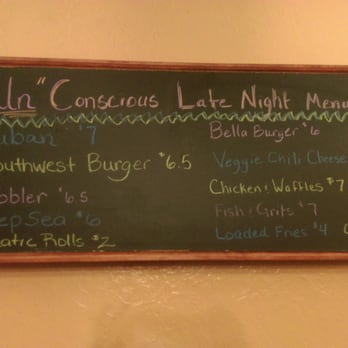 Un" Conscious Late Night Menu
uban $7
outhwest Burger $6.5
obbler $6.5
ep Sea $6
atic Rolls $2
Bella Burger $6
Veggie Chili Cheese
Chicken & Waffles $7
Fish & Grits $7
Loaded Fries $4